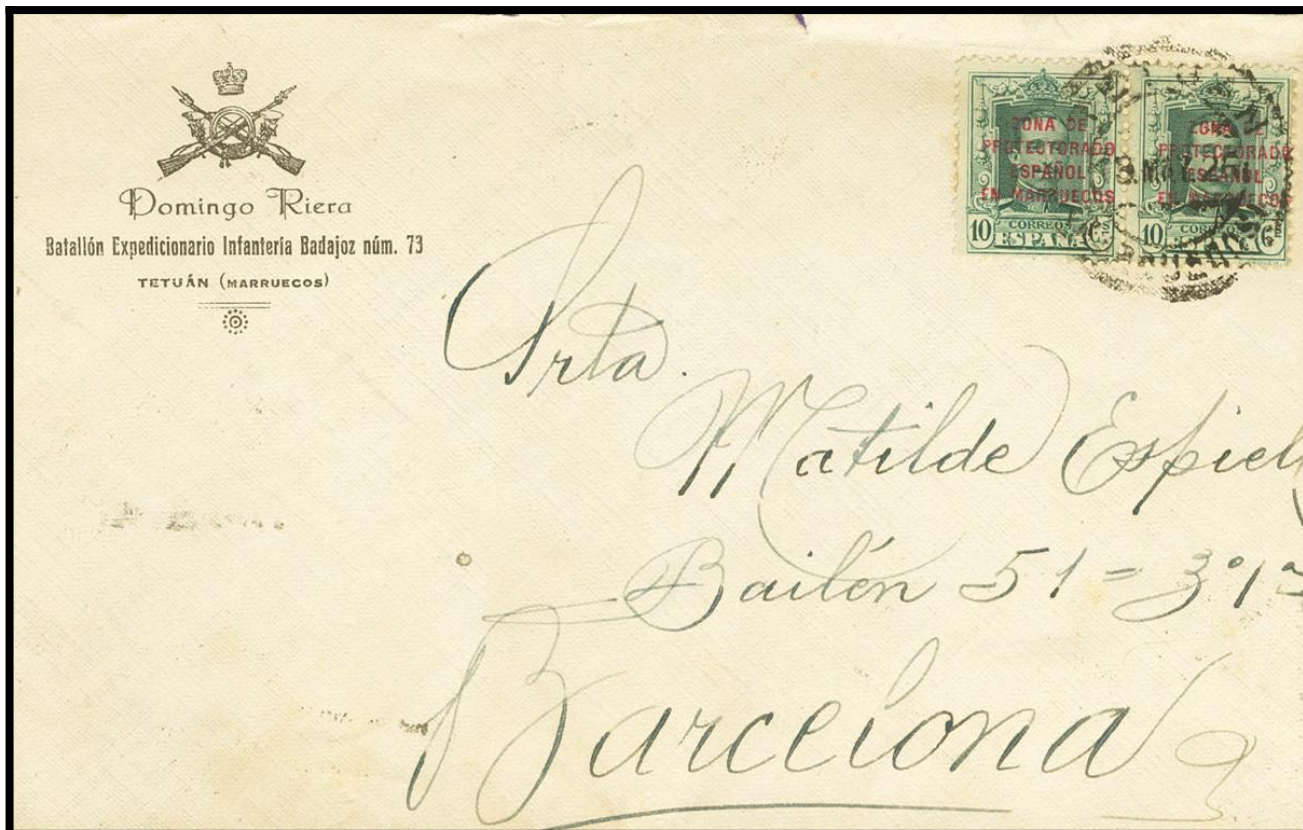 Domingo Riera
Batallón Expedicionario Infantería Badajoz núm. 73
TETUÁN (MARRUECOS)
ZONA DE
PROTECTORADO
ESPAÑOL
EN MARRUECOS
10 CORREOS
ESPAÑA
ZONA DE
PROTECTORADO
ESPAÑOL
EN MARRUECOS
10 CORREOS
ESPAÑA
25
Srta.
Matilde
Bailén 51 = 3º 1
Barcelona